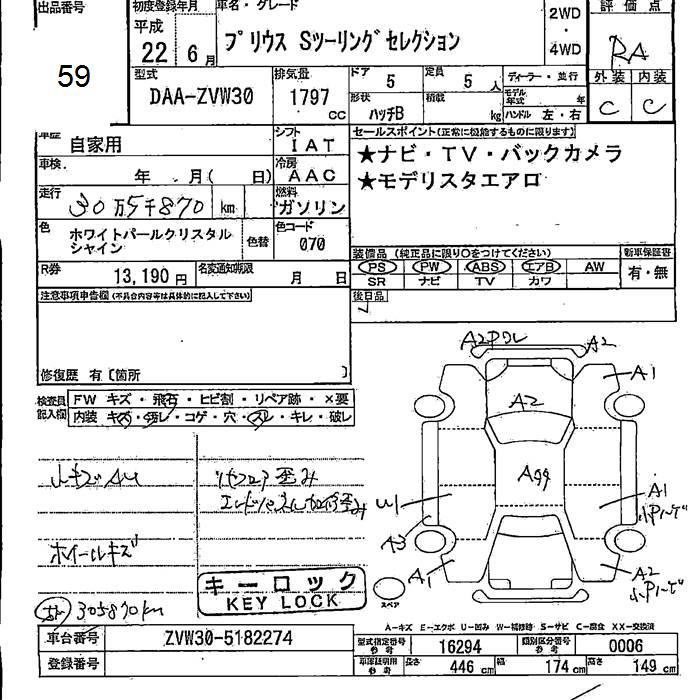 出品番号
59
初度登録年月
平成
22年 6月
車名・グレード
プリウス Sツーリングセレクション
2WD
・
4WD
評価点
RA
外装 内装
C C
型式
DAA-ZVW30
排気量
1797
CC
ドア
5
定員
5人
形状
ハッチB
積載
kg
ディーラー・並行
モデル年式 年
ハンドル 左・右
車歴
自家用
シフト
IAT
車検
年 月( 日)
冷房
AAC
走行
30万5千870 km
燃料
ガソリン
色
ホワイトパールクリスタル
シャイン
色替
色コード
070
R券
13,190円
名変通知期限
月 日
セールスポイント(正常に機能するものに限ります)
★ナビ・TV・バックカメラ
★モデリスタエアロ
装備品(純正品に限り○をつけてください)
PS PW ABS エアB AW
SR ナビ TV カワ
新車保証書
有・無
後日品
注意事項申告欄(不具合内容等は具体的に記入して下さい)
修復歴 有〔箇所 〕
検査員
記入欄
FW キズ・飛石・ヒビ割・リペア跡・×要
内装 キズ・汚レ・コゲ・穴・スレ・キレ・破レ
小キズAU
リヤフロア歪み
エンドパネル加修歪み
ホイールキズ
305870km
キーロック
KEY LOCK
A2
A2
A1
A2
A99
W1
A1
A3
A1
A2
スペア
A-キズ E-エクボ U-凹み W-補修跡 S-サビ C-腐食 XX-交換済
車台番号
ZVW30-5182274
登録番号
型式指定番号
参考
16294
類別区分番号
参考
0006
車庫証明用
参考
長さ
446 cm
幅
174 cm
高さ
149 cm